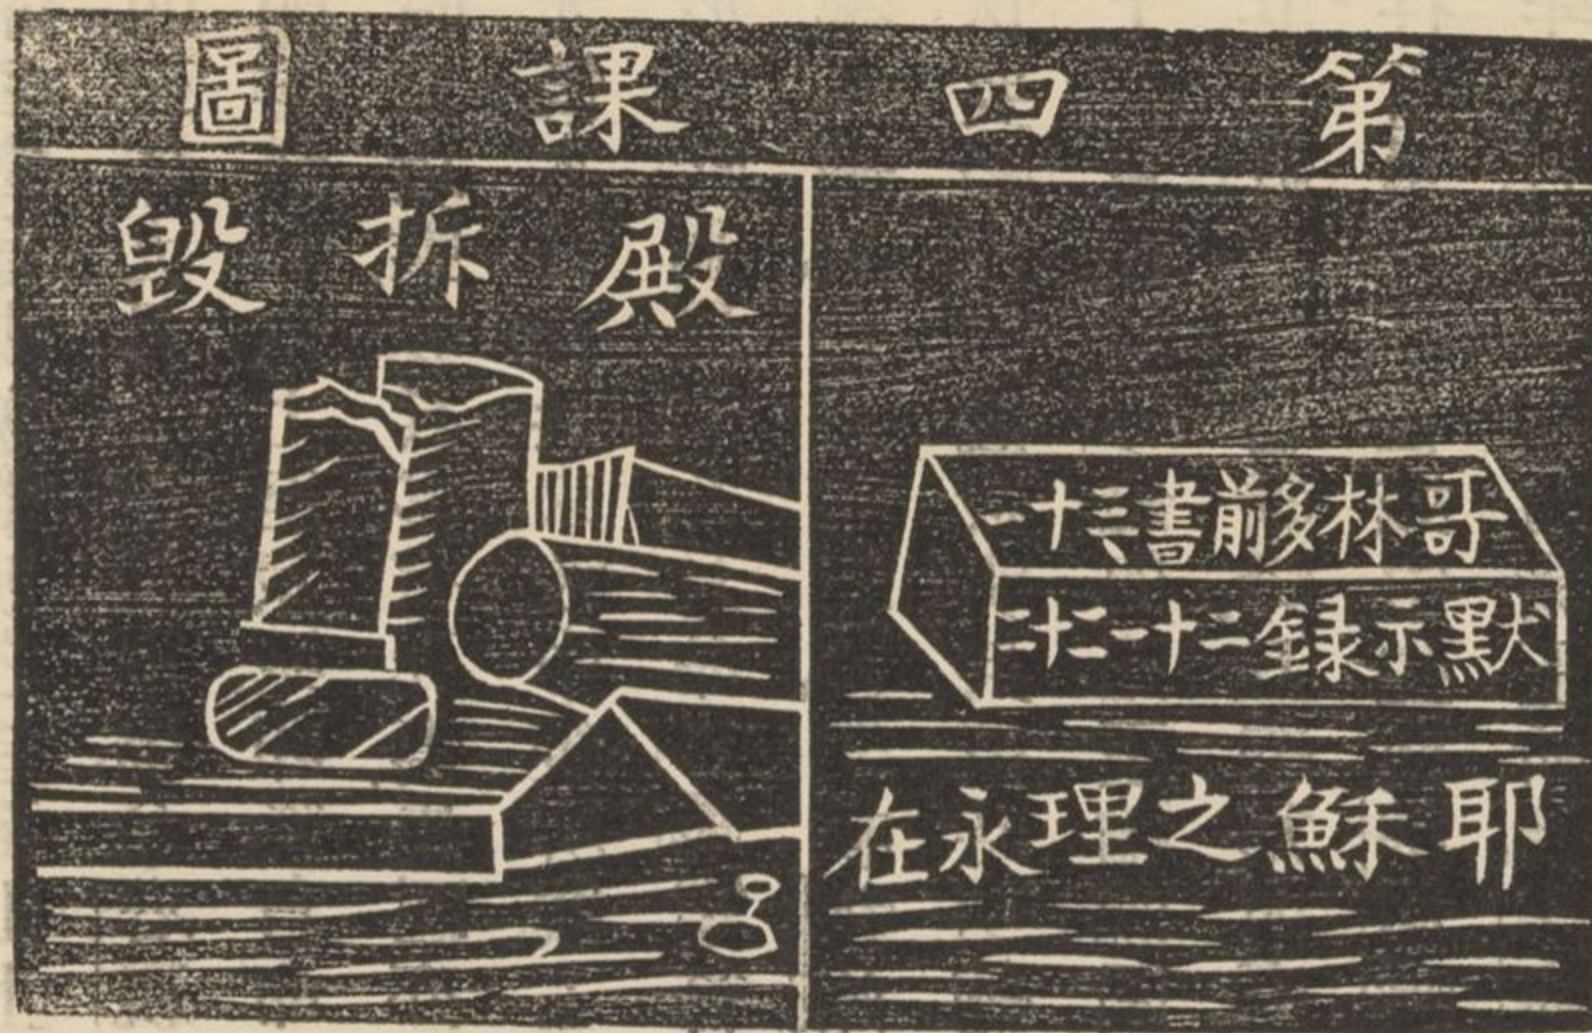 第四課圖
哥林多前書三十一
默示錄二十一二十二
耶穌之理永在
殿拆毀